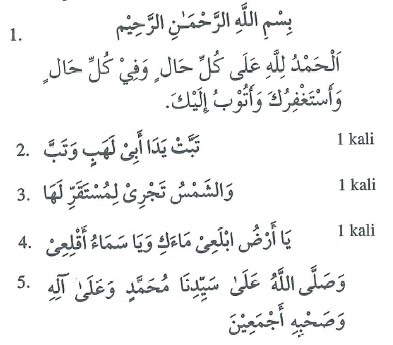 1. بِسْمِ اللَّهِ الرَّحْمَـٰنِ الرَّحِيْمِ
اَلْحَمْدُ لِلَّهِ عَلَى كُلِّ حَالٍ وَفِيْ كُلِّ حَالٍ
وَأَسْتَغْفِرُكَ وَأَتُوْبُ إِلَيْكَ.
2. تَبَّتْ يَدَا أَبِىْ لَهَبٍ وَتَبَّ 1 kali
3. وَالشَّمْسُ تَجْرِىْ لِمُسْتَقَرٍّ لَهَا 1 kali
4. يَا أَرْضُ ابْلَعِىْ مَاءَكِ وَيَا سَمَاءُ أَقْلِعِىْ 1 kali
5. وَصَلَّى اللَّهُ عَلَىٰ سَيِّدِنَا مُحَمَّدٍ وَعَلَىٰ آلِهِ
وَصَحْبِهِ أَجْمَعِيْنَ